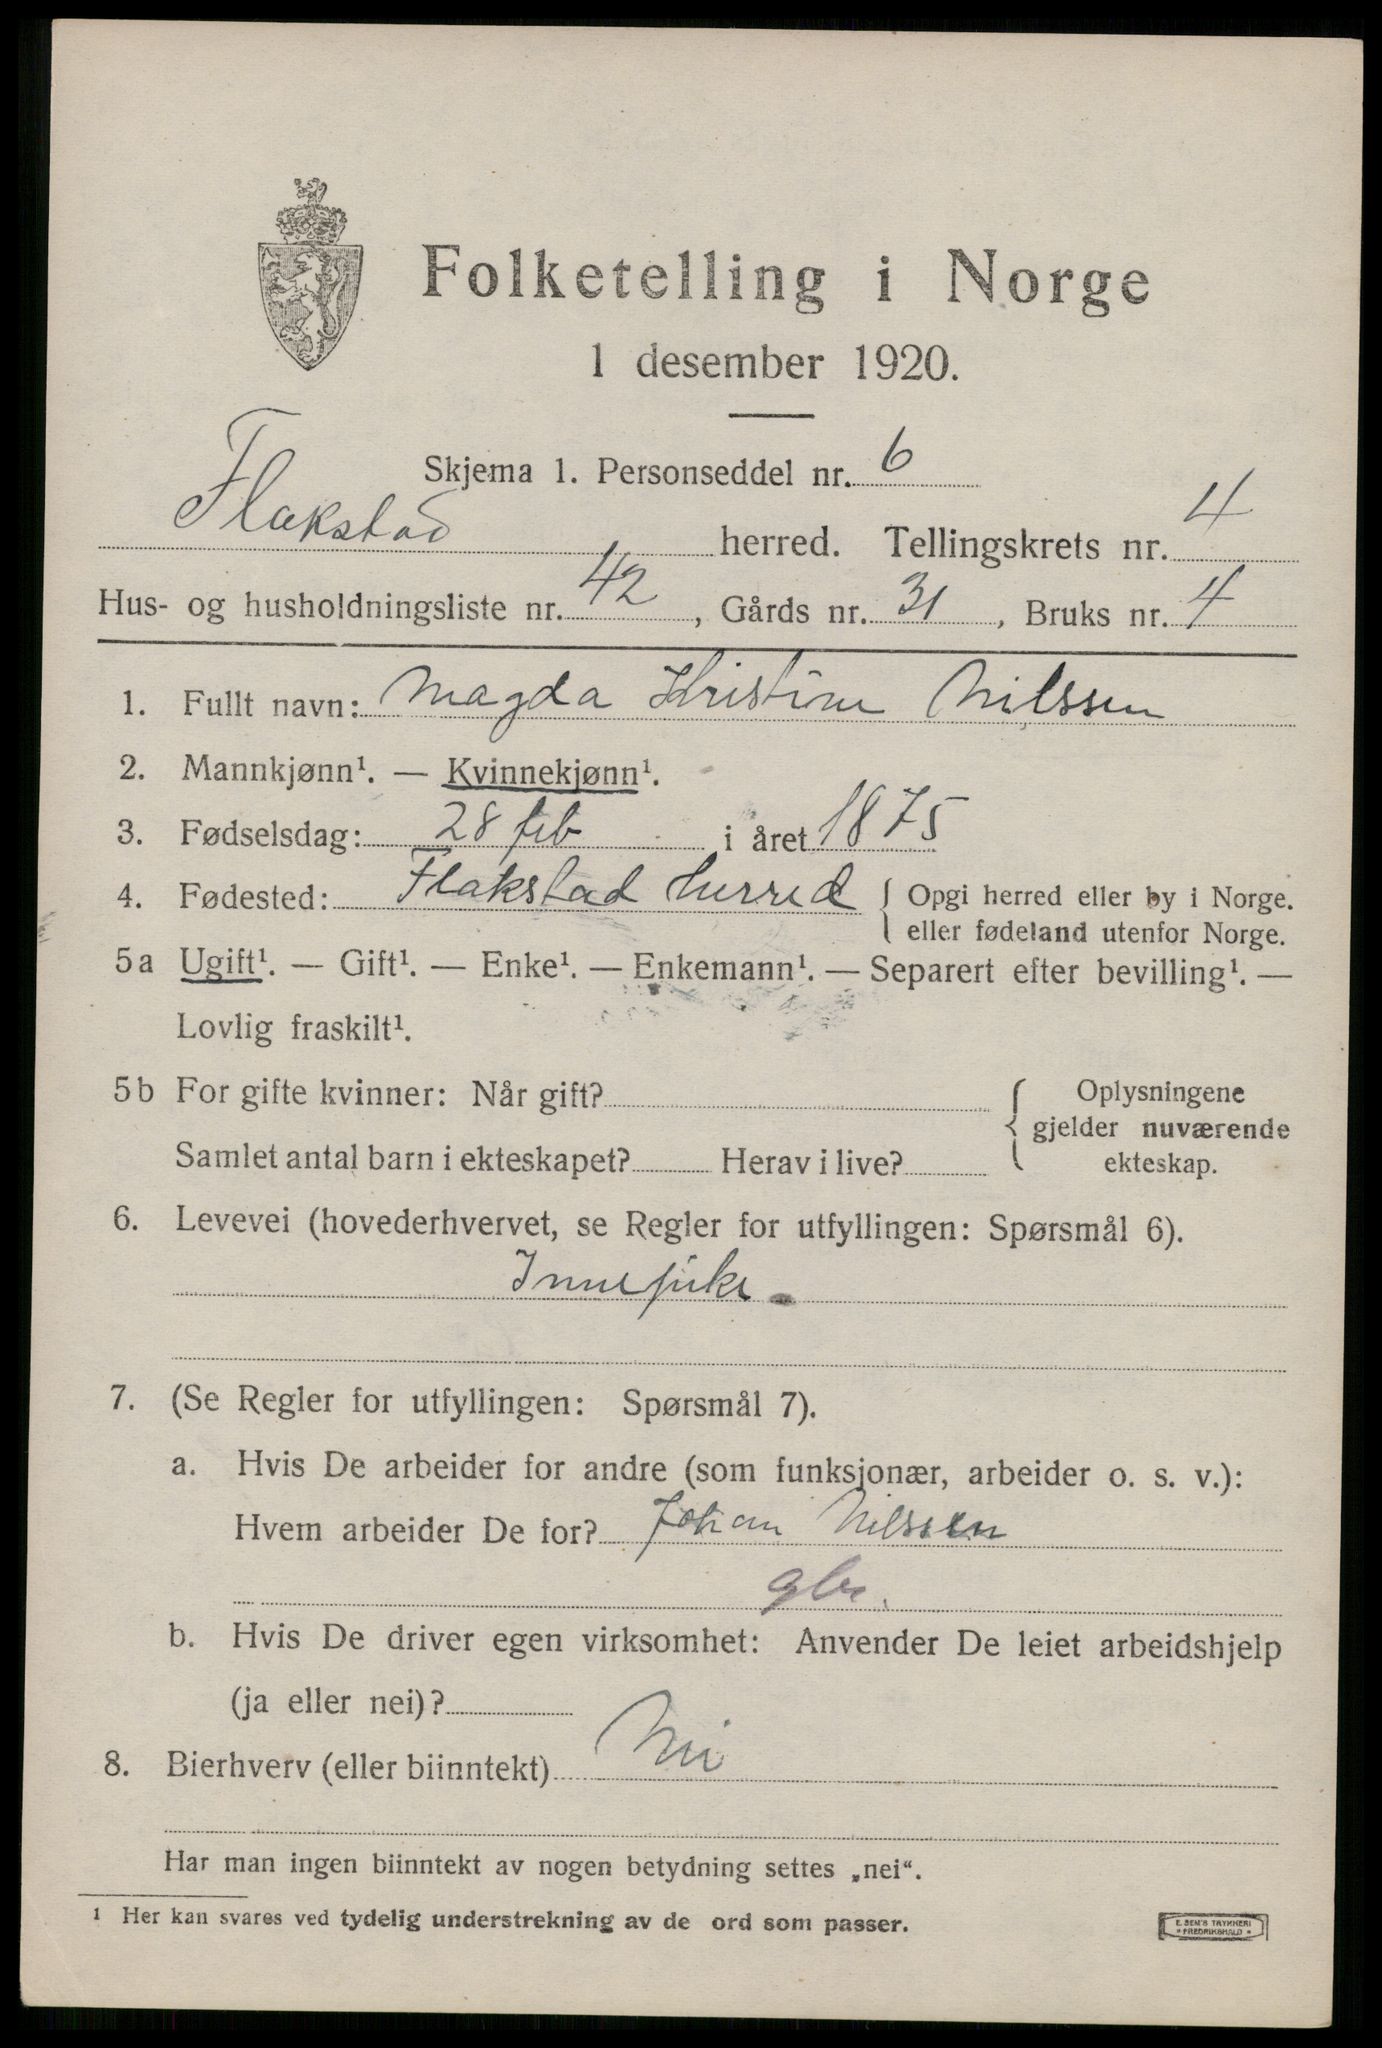 Folketelling i Norge
1 desember 1920.
Skjema 1. Personseddel nr. 6
Flakstad herred. Tellingskrets nr. 4
Hus- og husholdningsliste nr. 42, Gårds nr. 31, Bruks nr. 4
1. Fullt navn: Magda Kristine Nilssen
2. Mannkjønn¹. — Kvinnekjønn¹.
3. Fødselsdag: 28 feb i året 1875
4. Fødested: Flakstad herred { Opgi herred eller by i Norge.
eller fødeland utenfor Norge.
5a Ugift¹. — Gift¹. — Enke¹. — Enkemann¹. — Separert efter bevilling¹. —
Lovlig fraskilt¹.
5b For gifte kvinner: Når gift? Oplysningene
gjelder nuværende
Samlet antal barn i ekteskapet? Herav i live? ekteskap.
6. Levevei (hovederhvervet, se Regler for utfyllingen: Spørsmål 6).
Innepike
7. (Se Regler for utfyllingen: Spørsmål 7).
a. Hvis De arbeider for andre (som funksjonær, arbeider o. s. v.):
Hvem arbeider De for? Johan Nilssen
gbr.
b. Hvis De driver egen virksomhet: Anvender De leiet arbeidshjelp
(ja eller nei)?
8. Bierhverv (eller biinntekt) Nei
Har man ingen biinntekt av nogen betydning settes „nei“.
1 Her kan svares ved tydelig understrekning av de ord som passer.
E. SEM'S TRYKKERI
* FREDRIKSHALD *